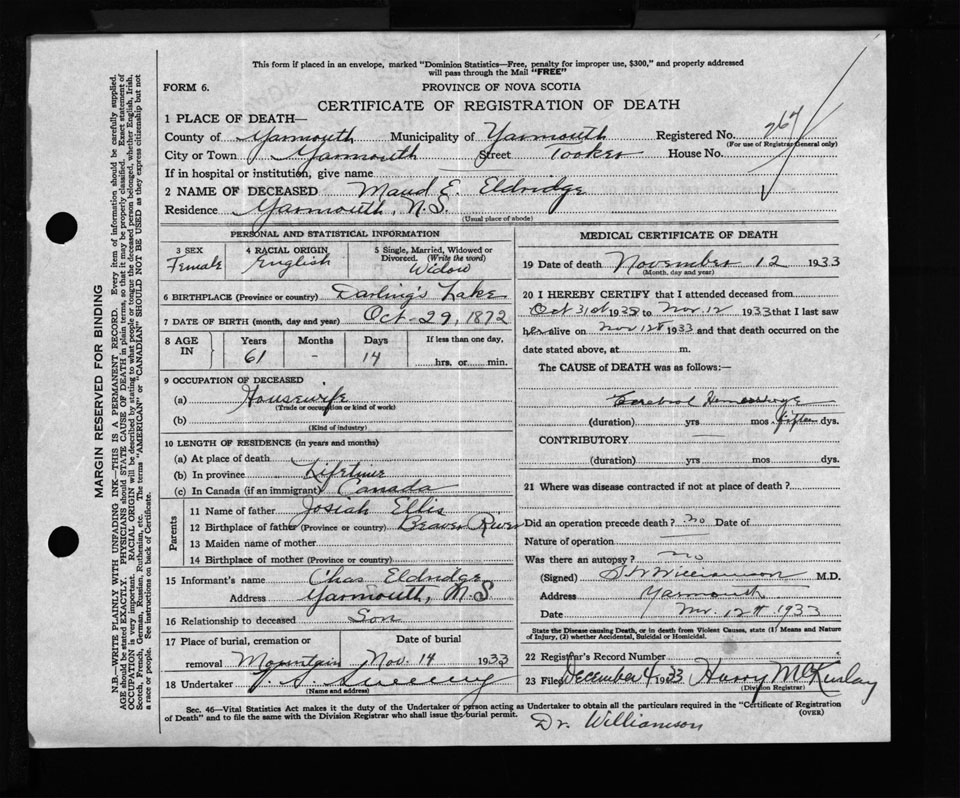 This form if placed in an envelope, marked "Dominion Statistics—Free, penalty for improper use, $300," and properly addressed
will pass through the Mail "FREE"
FORM 6.
PROVINCE OF NOVA SCOTIA
CERTIFICATE OF REGISTRATION OF DEATH
1 PLACE OF DEATH—
County of Yarmouth Municipality of Yarmouth Registered No. 267
(For use of Registrar General only)
City or Town Yarmouth Street Tooker House No.
If in hospital or institution, give name
2 NAME OF DECEASED Maud E. Eldridge
Residence Yarmouth, N.S.
(Usual place of abode)
PERSONAL AND STATISTICAL INFORMATION
3 SEX Female
4 RACIAL ORIGIN English
5 Single, Married, Widowed or Divorced. (Write the word) Widow
6 BIRTHPLACE (Province or country) Darling's Lake
7 DATE OF BIRTH (month, day and year) Oct-29, 1872
8 AGE IN Years 61 Months - Days 14 If less than one day, hrs. or min.
9 OCCUPATION OF DECEASED
(a) Housewife
(Trade or occupation or kind of work)
(b)
(Kind of industry)
10 LENGTH OF RESIDENCE (in years and months)
(a) At place of death
(b) In province Lifetime
(c) In Canada (if an immigrant) Canada
Parents
11 Name of father Josiah Ellis
12 Birthplace of father (Province or country) Beaver River
13 Maiden name of mother
14 Birthplace of mother (Province or country)
15 Informant's name Chas Eldridge
Address Yarmouth, N.S
16 Relationship to deceased Son
17 Place of burial, cremation or Date of burial
removal Mountain Nov. 14 1933
18 Undertaker V. S. Sweeny
(Name and address)
MEDICAL CERTIFICATE OF DEATH
19 Date of death November 12 1933
(Month, day and year)
20 I HEREBY CERTIFY that I attended deceased from
Oct 31st 1933 to Nov. 12 1933 that I last saw
her alive on Nov 12th 1933 and that death occurred on the
date stated above, at m.
The CAUSE of DEATH was as follows:—
Cerebral Hemorrhage
(duration) yrs mos fifteen dys.
CONTRIBUTORY
(duration) yrs mos dys.
21 Where was disease contracted if not at place of death?
Did an operation precede death? no Date of
Nature of operation
Was there an autopsy? no
(Signed) Williamson M.D.
Address Yarmouth
Date Nov. 12th 1933
State the Disease causing Death, or in death from Violent Causes, state (1) Means and Nature
of Injury, (2) whether Accidental, Suicidal or Homicidal.
22 Registrar's Record Number
23 Filed December 4 1933 Harry McKinlay
(Division Registrar)
Sec. 46—Vital Statistics Act makes it the duty of the Undertaker or person acting as Undertaker to obtain all the particulars required in the "Certificate of Registration
of Death" and to file the same with the Division Registrar who shall issue the burial permit. (OVER)
Dr. Williamson
MARGIN RESERVED FOR BINDING
N.B.—WRITE PLAINLY WITH UNFADING INK—THIS IS A PERMANENT RECORD. Every item of information should be carefully supplied.
AGE should be stated EXACTLY. PHYSICIANS should STATE CAUSE OF DEATH in plain terms, so that it may be properly classified. Exact statement of
OCCUPATION is very important. RACIAL ORIGIN will be described by stating to what people or tongue the deceased person belonged, whether English, Irish,
Scotch, French, German, Russian, Ruthenian, etc. The terms "AMERICAN" or "CANADIAN" SHOULD NOT BE USED as they express citizenship but not
a race or people. See instructions on back of Certificate.